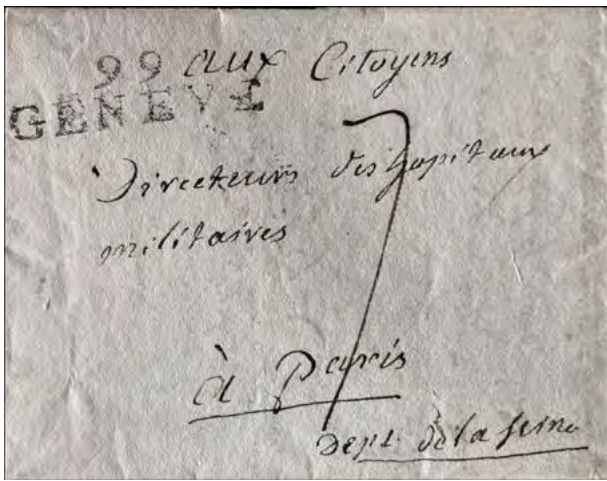 99 aux Citoyens
GENEVE
7
Directeurs des hopitaux
militaires
à Paris
Dept. de la Seine